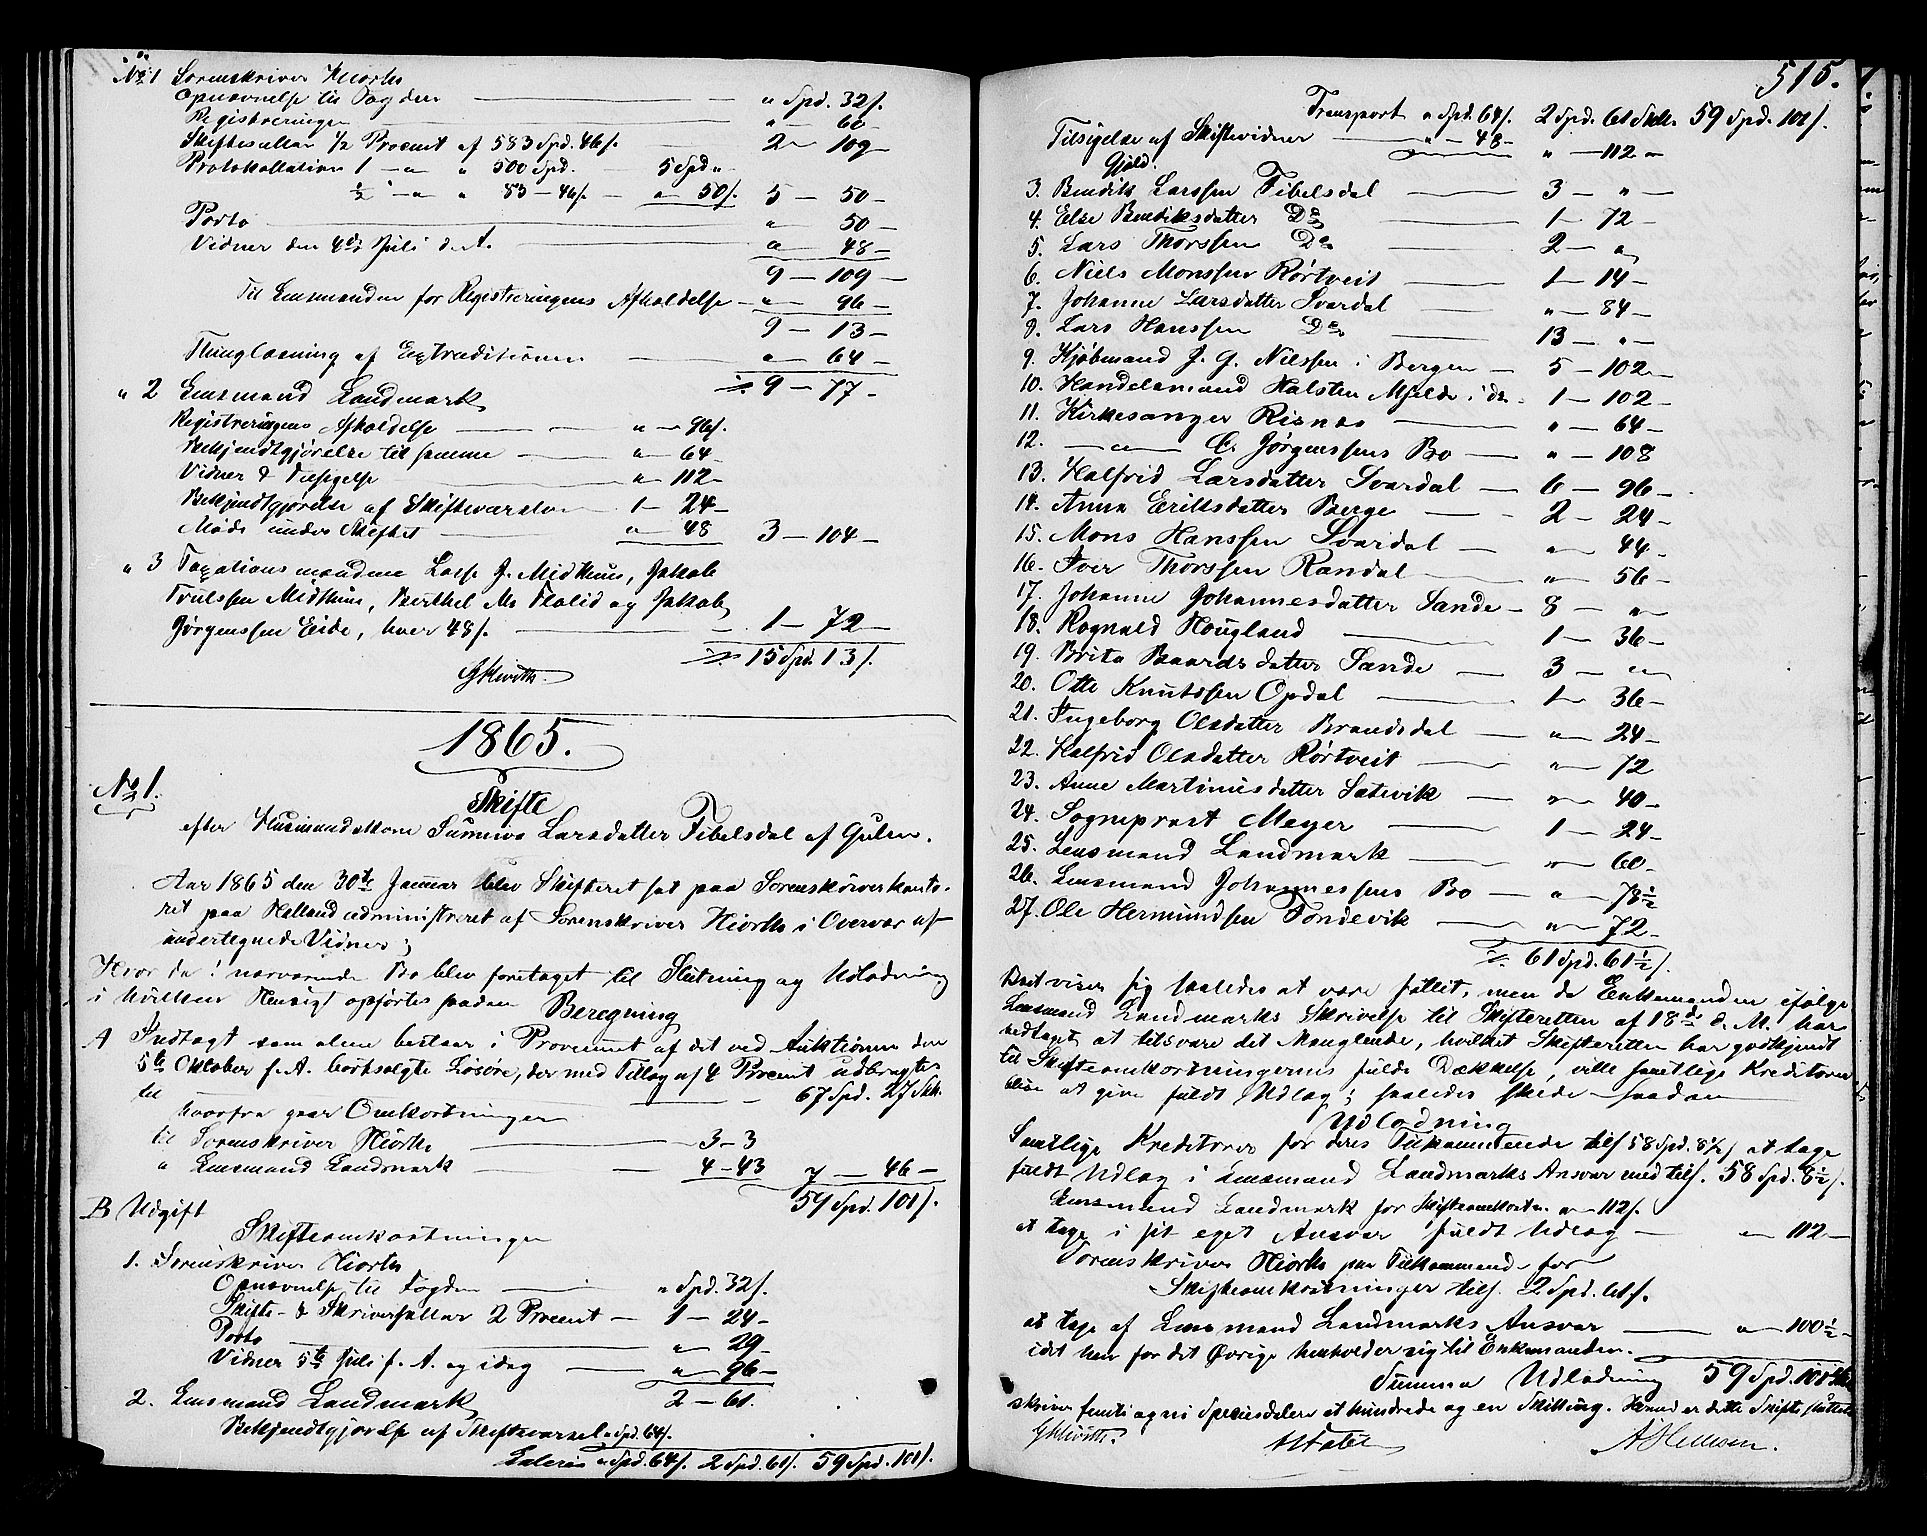 No 1 Sorenskriver Hiorth
Opnævnelse til Fogden — " Spd. 32 s.
Registreringen — " 60 -
Skiftesallær 1/2 Procent af 583 Spd. 46 s. — 2 - 109 -
Protokollation 1 — " — " 500 Spd. — 5 Spd. "
1/2 — " — " 83 - 46 s. — " 50 s. 5 - 50 -
Porto — " 50 -
Vidner den 4de Juli d. A. — " 48 -
9 - 109 -
Til Lensmanden for Registreringens Afholdelse — " - 96 -
9 - 13 -
Thinglæsning af Extraditionen — " 64 -
9 - 77 -
" 2 Lensmand Landmark
Registreringens Afholdelse — " - 96 s.
Bekjendtgjørelse til samme — " 64 -
Vidner & Tilsigelse — " 112 -
Bekjendtgjørelse af Skiftevarslen 1 - 24 -
Møde under Skiftet — " - 48 3 - 104 -
" 3 Taxationsmændene Lasse J. Midthun, Jakob
Trulssen Midthun, Berthel M. Flolid og Jakob
Jørgenssen Eide, hver 48 s. — 1 - 72 -
15 Spd. 13 s.
1865.
No 1.
Skifte
efter Husmandskone Sunneva Larsdatter Tibelsdal af Gulen.
Aar 1865 den 30te Januar blev Skifteret sat paa Sorenskriverkonto-
ret paa Helland administreret af Sorenskriver Hiorth i Overvær af
undertegnede Vidner;
Hvor da i nærværende Bo blev foretaget til Slutning og Udlodning
i hvilken Hensigt opførtes saadan Beregning
A Indtægt som alene bestaar i Provenuet af det ved Auktionen den
5te Oktober f. A. bortsolgte Løsøre, der med Tillæg af 4 Procent udbragtes
til — 67 Spd. 27 Sk.
hvorfra gaar Omkostninger
til Sorenskriver Hiorth — 3 - 3
" Lensmand Landmark — 4 - 43 7 - 46 -
59 Spd. 101 s.
B Udgift
Skifteomkostninger
1. Sorenskriver Hiorth
Opnævnelse til Fogden — " Spd. 32 s.
Skifte- & Skriversallær 2 Procent — 1 - 24 -
Porto — " 29 -
Vidner 5te Juli f. A. og idag — " 96 -
2 - 61.
2. Lensmand Landmark
Bekjendtgjørelse af Skiftevarsel " Spd. 64 s.
Lateris " Spd. 64 s. 2 Spd. 61 s. 59 Spd. 101 s.
515.
Transport " Spd. 64 s. 2 Spd. 61 Skill. 59 Spd. 101 s.
Tilsigelse af Skiftevidner — " - 48 -
" - 112 -
Gjæld.
3. Bendik Larssen Tibelsdal — 3 - " -
4. Else Bendiksdatter Do — 1 - 72 -
5. Lars Thorssen Do — 2 - "
6. Niels Monssen Rørtveit — 1 - 14 -
7. Johanne Larsdatter Svardal — " - 84 -
8. Lars Hanssen Do — 13 - " -
9. Kjøbmand J. G. Nilssen i Bergen — 5 - 102 -
10. Handelsmand Halsten Mjelde i do — 1 - 102 -
11. Kirkesanger Risnes — " - 64 -
12. — " — C. Jørgenssens Bo — " - 108
13. Halfrid Larsdatter Svardal — 6 - 96 -
14. Anna Eriksdatter Berge — 2 - 24 -
15. Mons Hanssen Svardal — " 44 -
16. Iver Thorssen Randal — " 56 -
17. Johanne Johannesdatter Sande — 8 - " -
18. Rognald Hougland — 1 - 36 -
19. Brita Baardsdatter Sande — 3 - " -
20. Otte Knutssen Opdal — 1 - 36 -
21. Ingeborg Olsdatter Brandsdal — " - 24 -
22. Halfrid Olsdatter Rørtveit — " - 72
23. Anne Martinusdatter Sætevik — " - 40 -
24. Sogneprest Meyer — 1 - 24 -
25. Lensmand Landmark — " - 60 -
26. Lensmand Johannessens Bo — " - 78 1/2
27. Ole Hermundsen Tondevik — " - 72 -
61 Spd. 61 1/2 s.
Boet viser sig saaledes at være fallit, men da Enkemanden ifølge
Lensmand Landmarks Skrivelse til Skifteretten af 18de d. M. har
vedtaget at tilsvare det Manglende, hvilket Skifteretten har godkjendt
til Skifteomkostningernes fulde Dækkelse, ville samtlige Kreditorer
blive at give fuldt Udlæg; saaledes skede saadan
Udlodning
Samtlige Kreditorer for deres Tilkommende tils. 58 Spd. 8 1/2 s. at tage
fuldt Udlæg i Lensmand Landmarks Ansvar med tils. 58 Spd. 8 1/2 s.
Lensmand Landmark for Skifteomkostn. " - 112 s.
at tage i sit eget Ansvar fuldt Udlæg — " - 112 -
Sorenskriver Hiorth paa Tilkommende for
Skifteomkostninger tils. 2 Spd. 61 s.
at tage af Lensmand Landmarks Ansvar — " - 100 1/2 -
idet han for det Øvrige henholder sig til Enkemanden.
Summa Udlodning 59 Spd. 101 Sk.
skriver femti og ni Speciesdaler et hundrede og en Skilling. Hermed er dette Skifte sluttet.